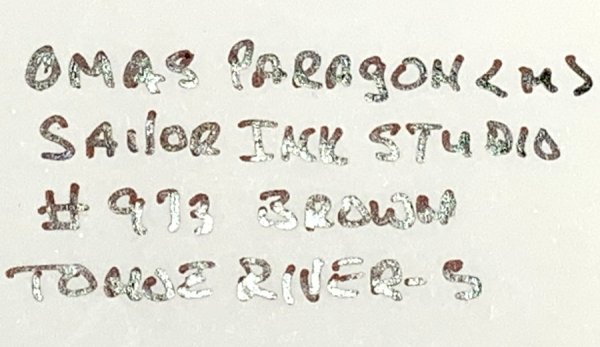 OMAS PARAGON <M>
SAILOR INK STUDIO
# 973 BROWN
TOMOE RIVER-S